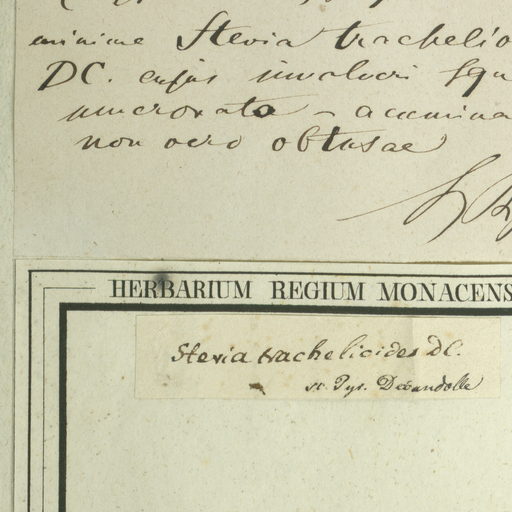 minime Stevia trachelio
DC. cujus involucri squ
mucronato - acumina
non vero obtusae
HERBARIUM REGIUM MONACENS
Stevia trachelioides DC.
Decandolle